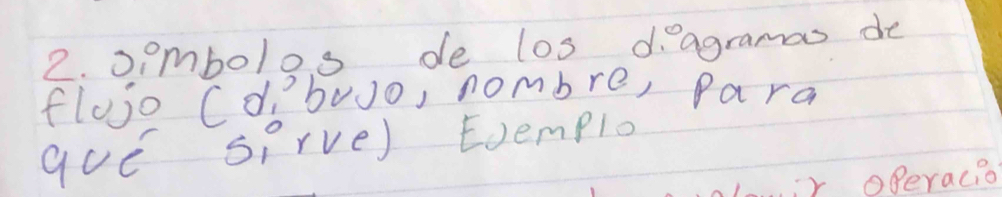 2. símbolos de los diagramas de
flujo (dibujo, nombre, para
qué sirve) Ejemplo
operacio